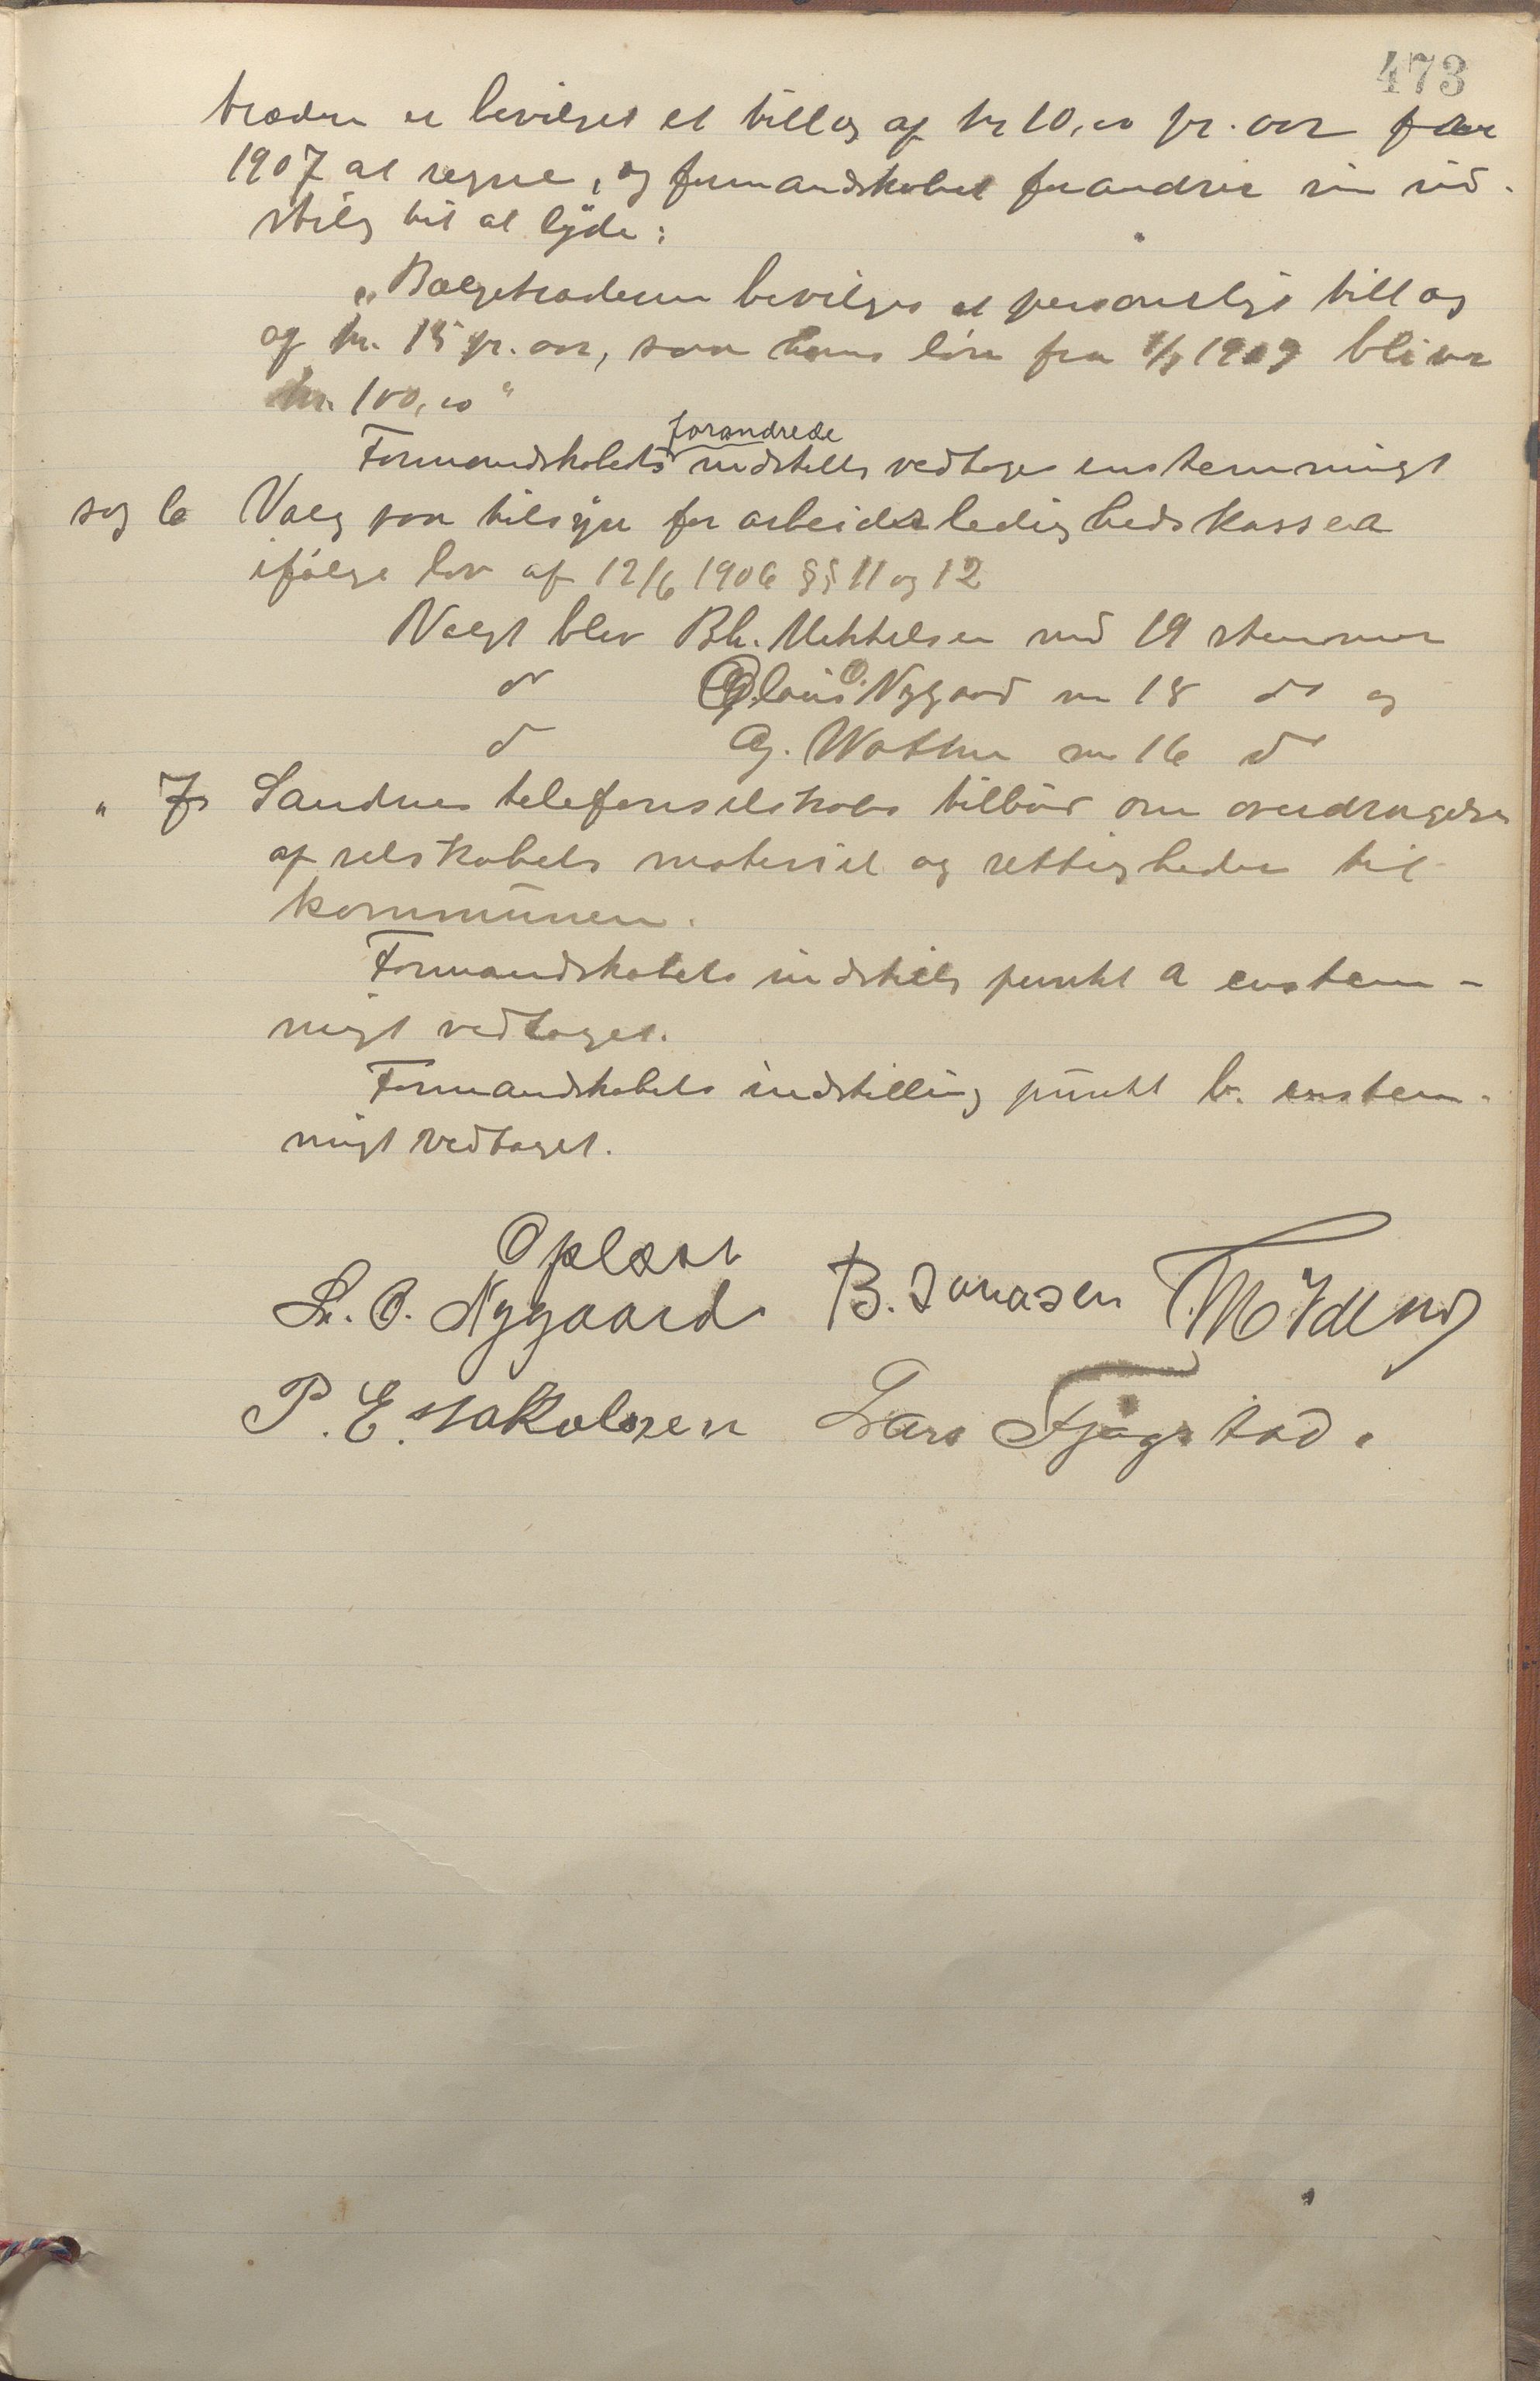 473
træderen er bevilget et tillæg af kr 10,00 pr. aar fra
1907 at regne, og formandskabet forandrer sin ind-
stillg til at lyde:
„Bælgetræderen bevilges et personligt tillæg
af kr. 15 pr. aar, saa hans løn fra 1/1 1909 bliver
kr. 100,00"
Formandskabets forandrede indstillg vedtages enstemmingt
sag 6 Valg paa tilsyn for arbeidsledighedskasser
ifølge lov af 12/6 1906 §§ 11 og 12
Valgt blev Bh. Mikkelsen med 19 stemmer
do Louis O. Nygaard m 18 do og
do Aj. Wathne m 16 do
" 7 Sandnes telefonselskabs tilbud om overdragelse
af selskabets materiel og rettigheder til
kommunen.
Formandskabets indstillg punkt a enstem-
migt vedtaget.
Formandskabets indstilling punkt b. enstem-
migt vedtaget.
Oplæst
L. O. Nygaard B. Jonasen
P. E. Jakobsen Lars Fjøgstad.